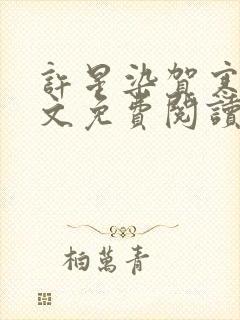 許星染賀寒
文免費閱讀
柏萬青